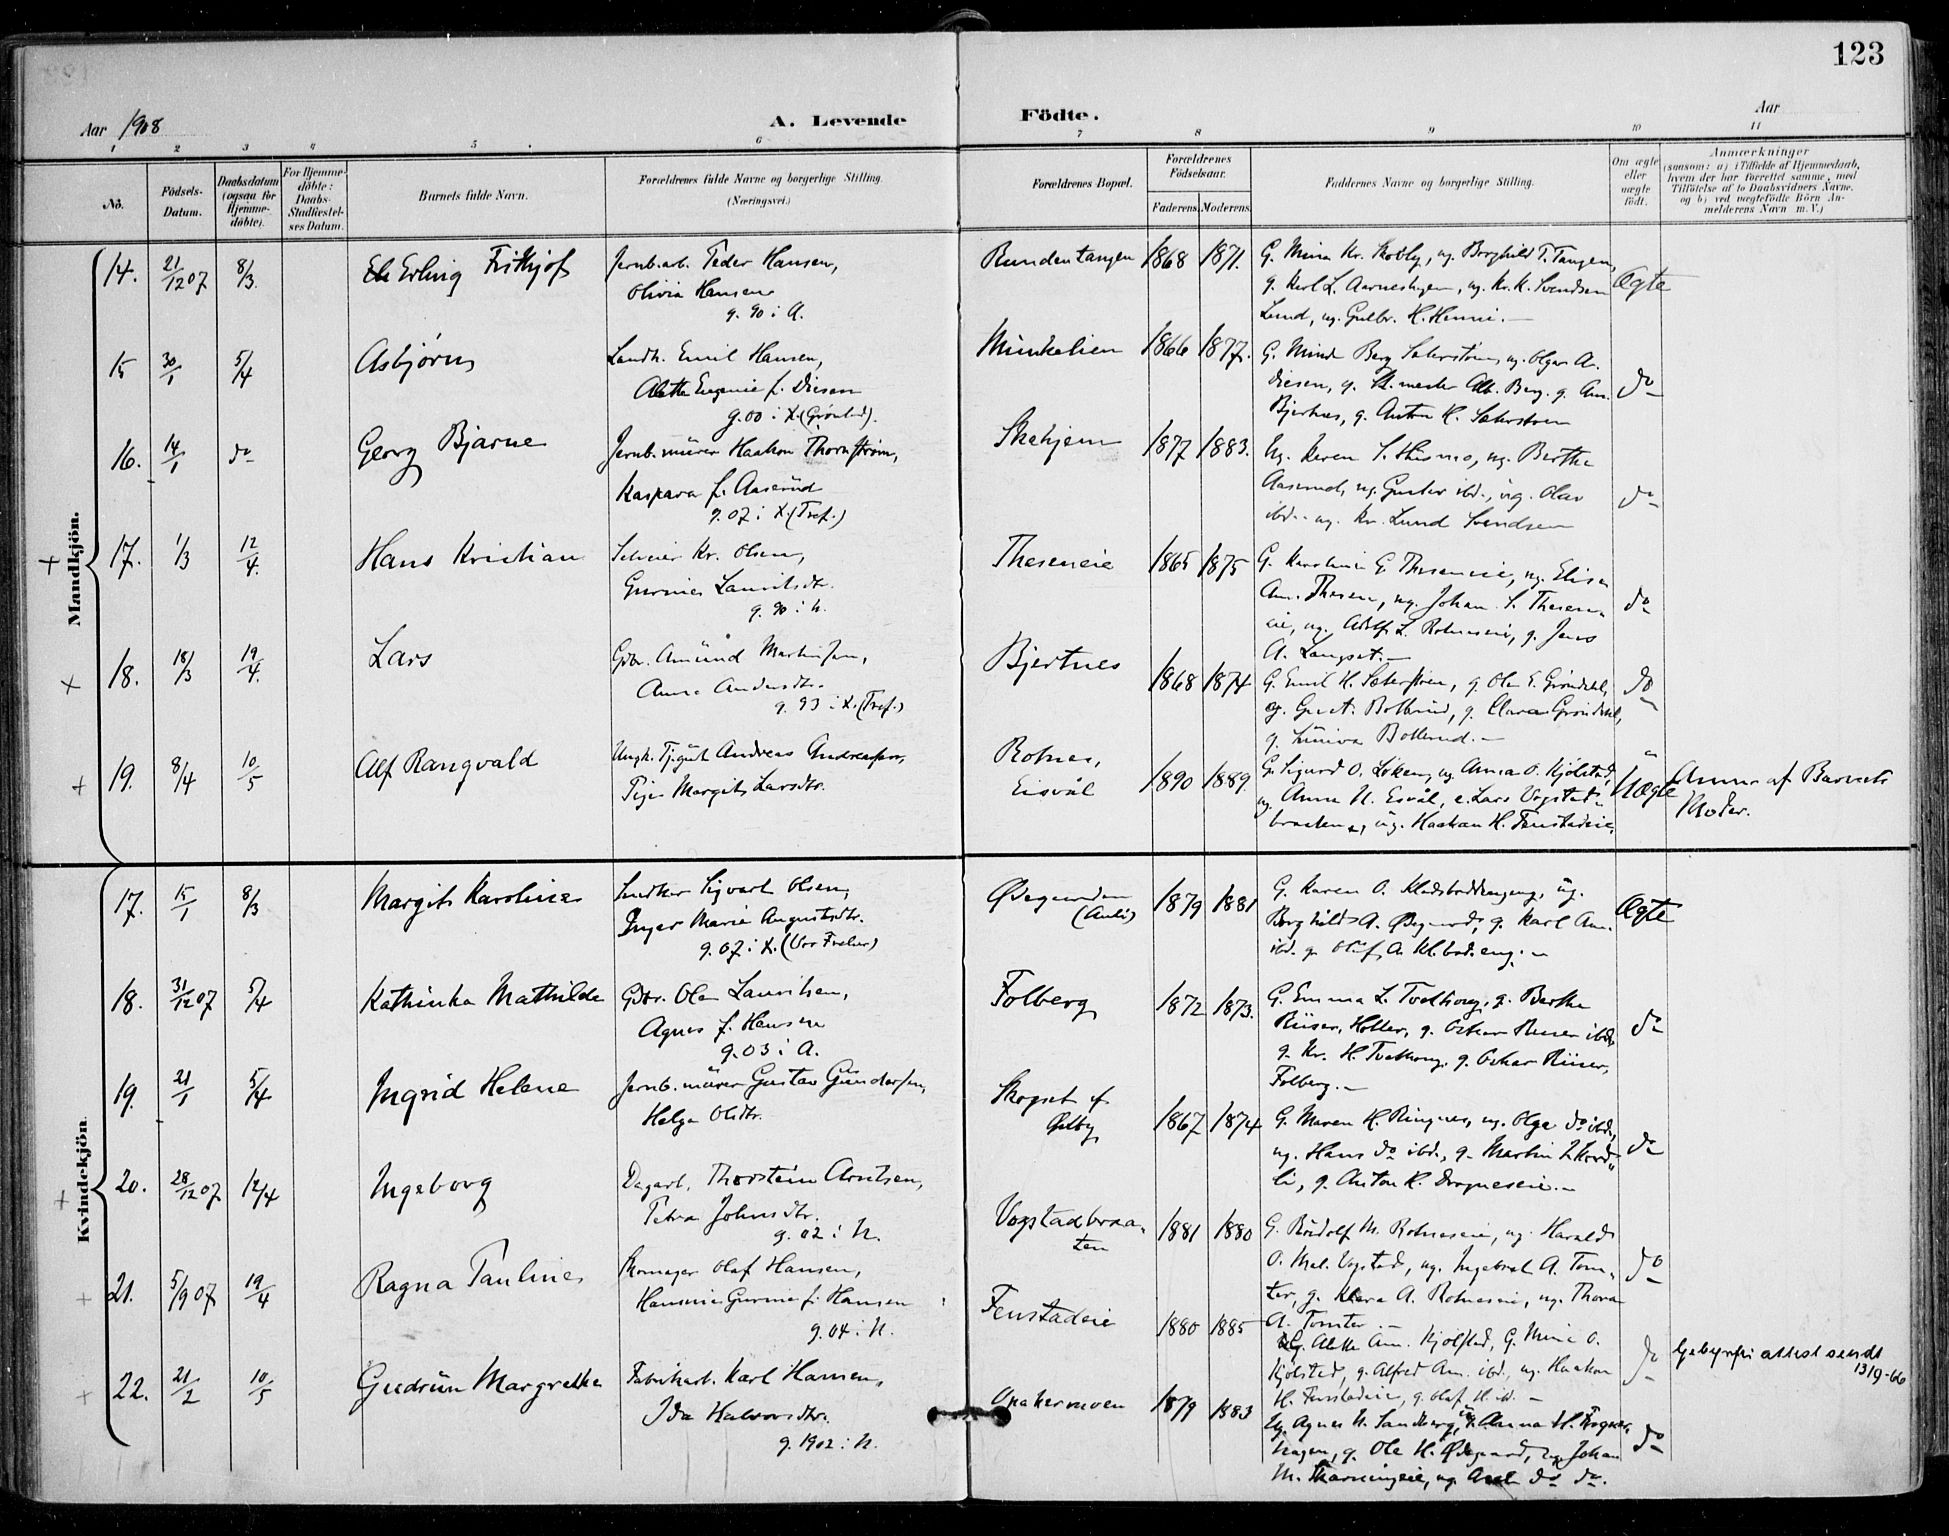 123
Aar 1908
A. Levende
Födte.
Aar
1 2 3 4 5 6 7 8 9 10 11
No.
Födsels-
Datum.
Daabsdatum
(ogsaa for
Hjemme-
döbte).
For Hjemme-
döbte:
Daabs-
Stadfæstel-
ses Datum.
Barnets fulde Navn.
Forældrenes fulde Navne og borgerlige Stilling.
(Næringsvei.)
Forældrenes Bopæl.
Forældrenes
Födselsaar.
Faderens.
Moderens.
Faddernes Navne og borgerlige Stilling.
Om ægte
eller
uægte
födt.
Anmærkninger
(saasom: a) i Tilfælde af Hjemmedaab,
hvem der har forrettet samme, med
Tilföielse af to Daabsvidners Navne,
og b) ved uægtefödte Börn An-
melderens Navn m. V.)
Mandkjön.
14. 21/12 07 8/3. Erling Frithjof
Jernb.arb. Peder Hansen,
Olivia Hansen
g. 90 i A.
Rundentangen 1868 1871.
Borghild T. Tangen,
Lund, ug. Gulbr. H.
Ægte
15 30/1 5/4 Asbjørn
Landh. Emil Hansen,
Alette Eugenie f. Diesen
g. 00 i X. (Grønlund).
Minkelien 1866 1877.
Diesen, g. St.mester Alb. Berg. g. Am.
Bjertnes, g. Anton H. Sæterstøen
do
16. 14/1 do Georg Bjarne
Jernb. mürer Haakon Thornstrøm,
Kaspara f. Aaserüd
g. 07 i X. (Tref.)
Skehjem 1877 1883.
ug. Berthe
Aaserud, ug. Gustav ibd., ug. Olav
ibd. ug. Kr. Lund Svendsen
do
17. 1/3 12/4. Hans Kristian
Kr. Olsen,
Gurine Lauritsdtr.
g. 90 i N.
Theseneie 1865 1875
G. Karoline G. Theseneie, ug. Elise
Am. Thesen, ug. Johan S. Thesen-
eie, ug. Adolf L. Rotneseie, g. Jens
A. Langset.
do
18. 18/3 19/4. Lars
Gdbr. Amünd Martinsen,
Anne Andersdtr.
g. 93 i X. (Tref.)
Bjertnes 1868 1874
G. Emil H. Sæterstøen, g. Ole E. Grøndahl,
g. Gust. Bollerüd, g. Clara Grøndahl,
g. Bollerud.
do
19. 8/4 10/5 Alf Rangvald
Ungk. Tj.güt Andreas Andreassen,
Pige Margit Larsdtr.
Rotnes,
Eisvål 1890 1889.
G. Sigurd O. Løken, ug. Anna O. Kjölstad,
ug. Anna N. Eisvål, e. Lars Vogstad-
braaten, ug. Haakon H. Fenstadeie.
Uægte
Anm. af Barnets
Moder.
Kvindekjön.
17. 15/1 8/3 Margit Karoline
Sigvart Olsen,
Inger Marie Augustsdtr.
g. 07 i X. (Vor Frelser)
Ødegaarden
(Auli) 1879 1881
G. Karen O. Kladsboddengeng, ug.
Borghild A. Ødegaard, g. Karl Am.
ibd. g. Oluf A. Kl.bod.eng.
Ægte
18. 31/12 07 5/4 Kathinka Mathilde
Gdbr. Ole Lauritsen,
Agnes f. Hansen
g. 03 i A.
Folberg 1872 1873.
G. Emma L. Tvethoug, g. Berthe
Riiser, Holter, g. Oskar Riiser ibd.
g. Kr. H. Tvethoug, g. Oskar Riiser,
Folberg.
do
19. 21/1 5/4 Ingrid Helene
Jernb. mürer Gustav Gündersen,
Helga Olsdtr.
Skogset af
Ørlby 1867 1874
G. Maren H. Ringnes, ug. Olga do ibd.,
ug. Hans do ibd., g. Martin
g. Anton K. Dragneseie.
do
20. 28/12 07 12/4 Ingeborg
Dagarb. Thorstein Arntsen,
Petra Johnsdtr.
g. 02 i N.
Vogstadbraa-
ten 1881 1880
G. Rüdolf M. Rotneseie, ug. Harald
O. Mel. Vogstad, ug. Ingebret A. Tom-
ter, g. Klara A. Rotneseie, ug. Thora
A. Tomter.
do
21. 5/9 07 19/4 Ragna Pauline
Skomager Olaf Hansen,
Gurine f. Hansen
g. 04 i N.
Fenstadeie 1880 1885
G. Alette Am. Kjölstad, G. Mina O.
Kjölstad, g. Alfred Am. ibd., ug. Haakon
H. Fenstadeie, g. Olaf H. ibd.
do
Gebyrfri attest sendt
13/9-66
22. 21/2 10/5 Gudrün Margrethe
Fabrikarb. Karl Hansen,
Ida Halvorsdtr.
g. 1902 i N.
Opakermoen 1879 1883
Ug. Agnes N. Sandberg, ug. Anna H. Fogner-
hagen, g. Ole H. Ødegaard, ug. Johan
M. ug. do do.
do